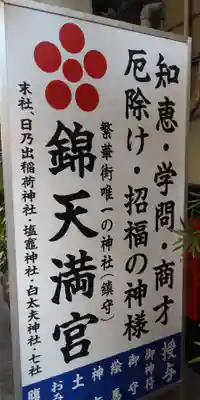 知恵・学問・商才
厄除け・招福の神様
繁華街唯一の神社(鎮守)
錦天満宮
末社、日乃出稲荷神社・塩竈神社・白太夫神社・七社
授与
御神符
御守
絵馬